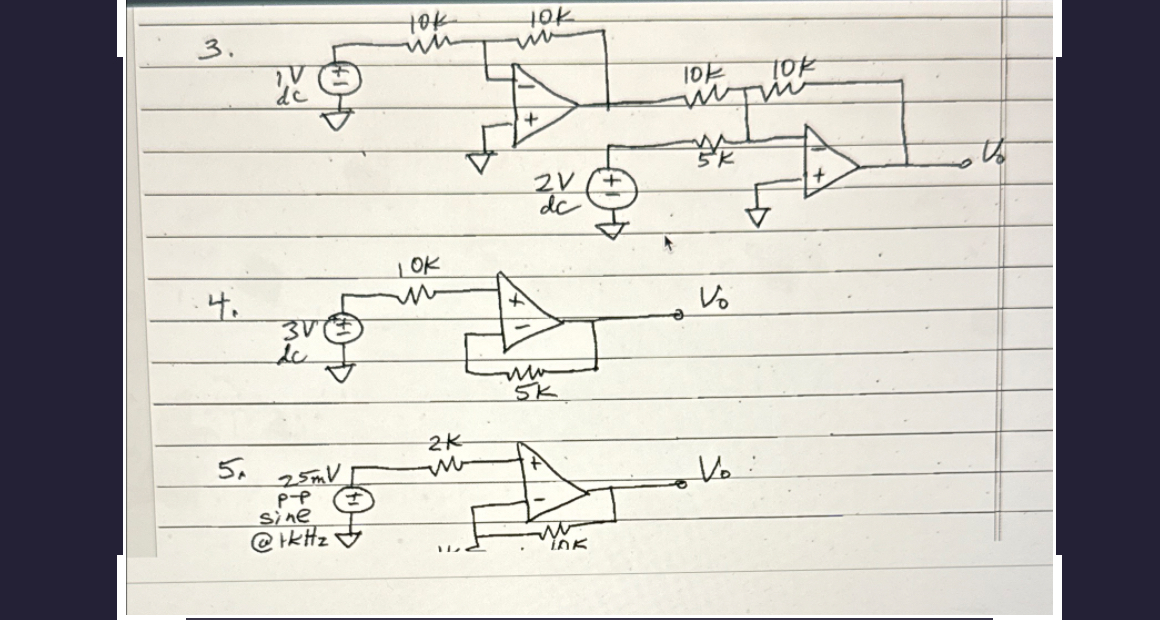 3.
10K
10K
1V
dc
+
−
−
+
10K
10K
5K
2V
dc
+
−
−
+
Vo
4.
10K
3V
dc
+
−
+
−
5K
Vo
5.
25mV
P-P
sine
@ 1KHz
+
−
2K
+
−
10K
Vo